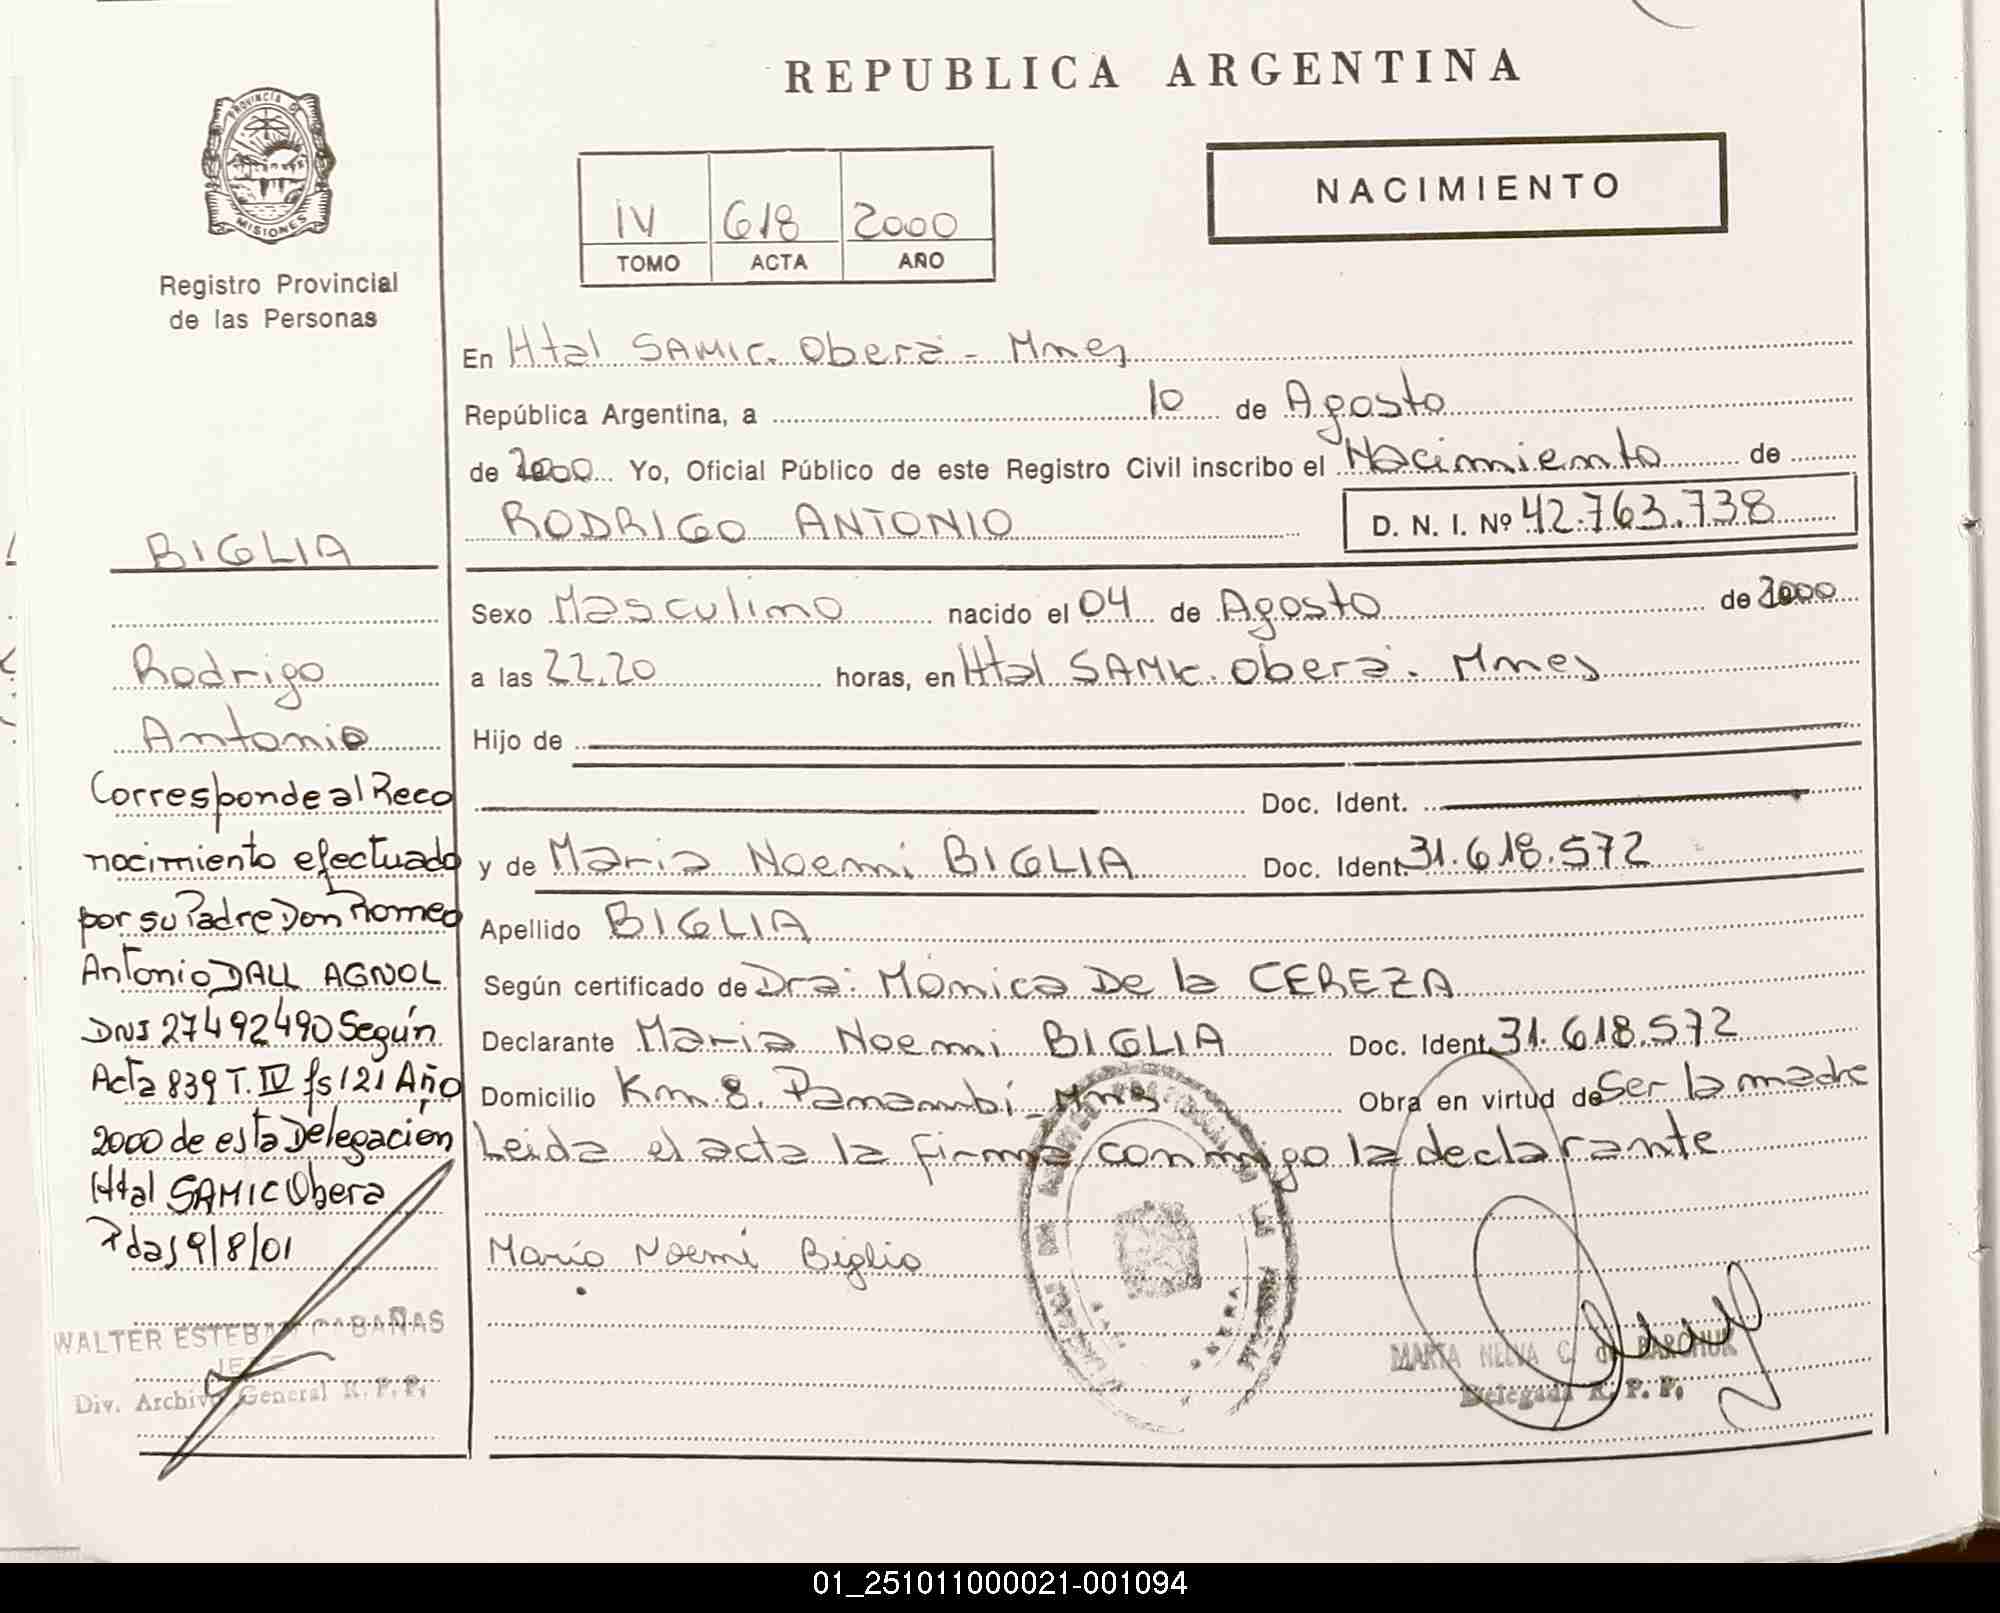 REPUBLICA ARGENTINA
PROVINCIA DE
MISIONES
Registro Provincial
de las Personas
IV 618 2000
TOMO ACTA AÑO
NACIMIENTO
En Htal SAMIC. Oberá - Mnes
República Argentina, a 10 de Agosto
de 2000 Yo, Oficial Público de este Registro Civil inscribo el Nacimiento de
RODRIGO ANTONIO D. N. I. Nº 42.763.738
Sexo Masculino nacido el 04 de Agosto de 2000
a las 22.20 horas, en Htal SAMIC. Oberá. Mnes
Hijo de
Doc. Ident.
y de Maria Noemi BIGLIA Doc. Ident. 31.618.572
Apellido BIGLIA
Según certificado de Dra: Mónica De la CEREZA
Declarante Maria Noemi BIGLIA Doc. Ident. 31.618.572
Domicilio Km 8. Panambí - Mnes Obra en virtud de Ser la madre
Leida el acta la firma conmigo la declarante
María Noemi Biglia
MARTA NELVA C. de BARCHUK
Delegada R. P. P.
BIGLIA
Rodrigo
Antonio
Corresponde al Reco
nocimiento efectuado
por su Padre Don Romeo
Antonio DALL AGNOL
DNI 27492490 Según
Acta 839 T. IV fs 121 Año
2000 de esta Delegación
Htal SAMIC Obera
Pdas 9/8/01
WALTER ESTEBAN CABAÑAS
JEFE
Div. Archivo General R. P. P.
OBERA
01_251011000021-001094